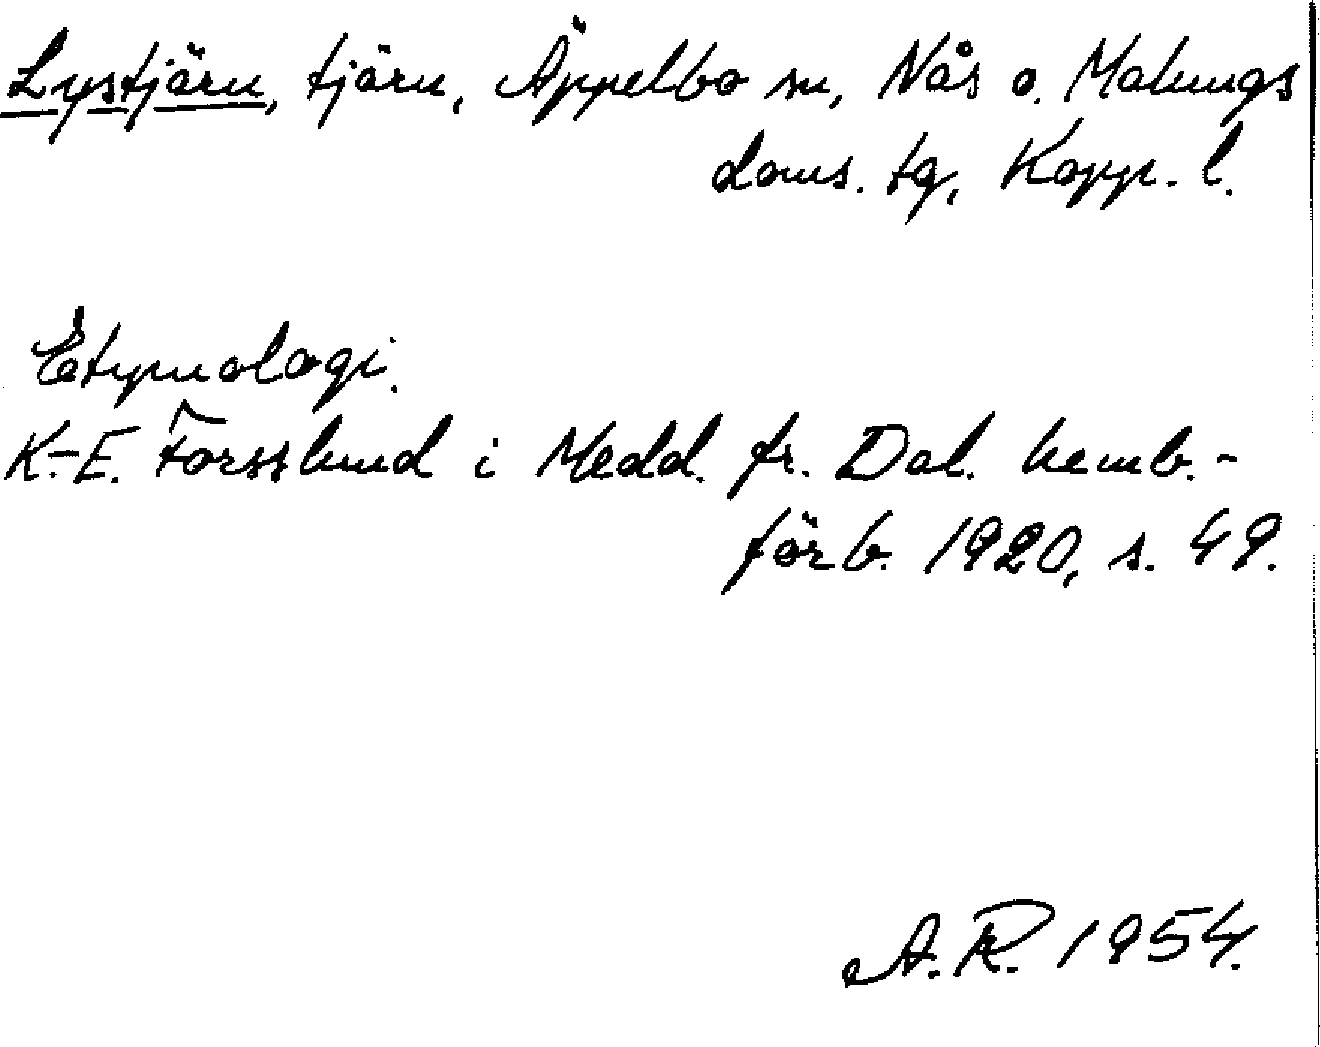 Lystjärn, tjärn, Äppelbo sn, Nås o. Malungs
doms. tg, Kopp. l.
Etymologi.
K.-E. Forsslund i Medd. fr. Dal. hemb.-
förb. 1920, s. 49.
A.R. 1954.